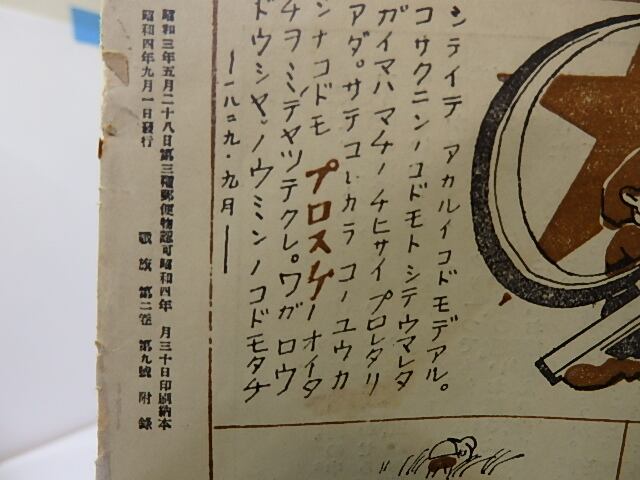 シテイテ アカルイコドモデアル。
コサクニンノコドモトシテウマレタ
ガイマハ マチノチヒサイプロレタリ
アダ。サテコレカラ コノユウカ
ンナコドモ プロスケノオイタ
チヲミテヤツテクレ。ワガロウ
ドウシヤノウミンノコドモタチ
―一八二九・九月―
昭和三年五月二十八日第三種郵便物認可昭和四年 月三十日印刷納本
昭和四年九月一日發行 戰旗 第二卷 第九號 附錄